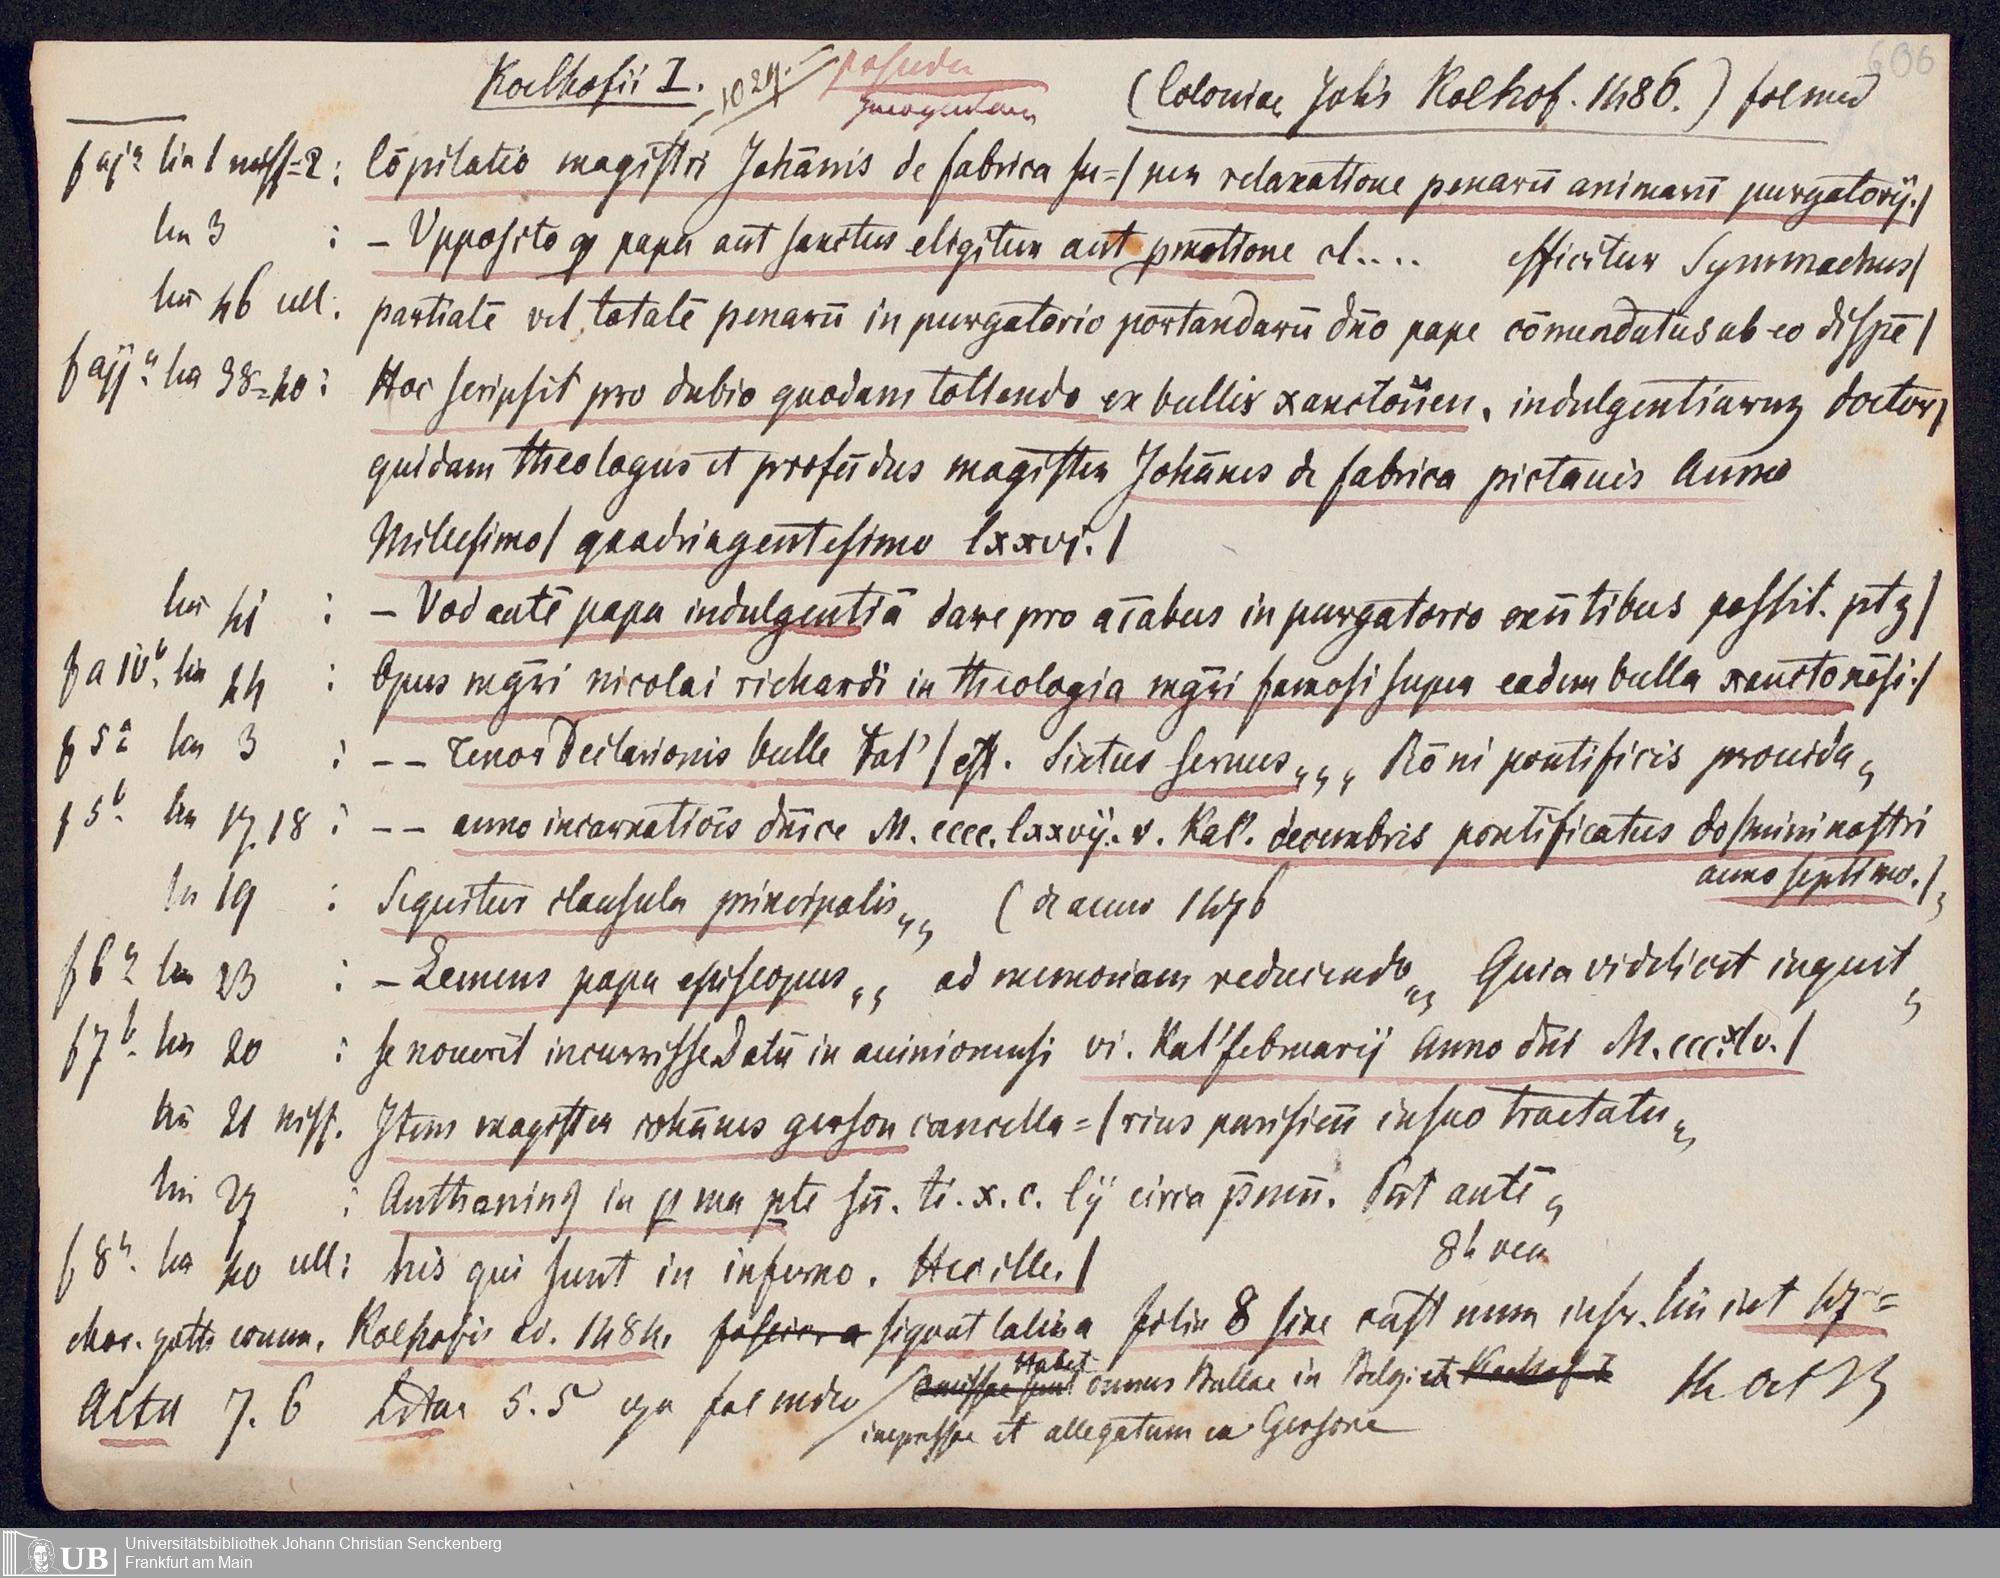 606
Koelhofii I. 1029. (Coloniae Johis Koelhof. 1486.) fol med
f aja lin 1 : Cōpilatio magistri Johānis de fabrica su=/per relaxatione penarū animarū purgatorij./
lin 3 : – Vpposito ꝙ papa aut sanctus eligitur aut pmotione el.... efficitur Symmachus/
lin 46 ull. partialē vel totalē penarū in purgatorio portandarū dn̄o pape cōmendatus ab eo dispē/
f aija lin 38=40 : Hoc scripsit pro dubio quodam tollendo ex bullis xanctonen. indulgentiarum doctor/
quidam theologus et profūdus magister Johānes de fabrica pictauis Anno
Millesimo/ quadringentesimo lxxvj./
lin 41 : – Vod autē papa indulgentiā dare pro aīabus in purgatorio exn̄tibus possit. ptz/
f a iiijb lin 24 : Opus mgr̄i nicolai richardi in theologia mgr̄i famosi super eadem bulla xanctonēsi./
f 5a lin 3 : – – Tenor Declarionis bulle tal'/ est. Sixtus seruus„„„ Rōni pontificis prouida„
f 5b lin 17.18 : – – anno incarnatiōis dn̄ice M.cccc.lxxvij. v. Kal'. decembris pontificatus do/mini nostri
anno septimo./„
lin 19 : Sequitur clausula principalis„„ (de anno 1476
f 6a lin 23 : – Lemens papa episcopus„„ ad memoriam reducendo„„ Quia videlicet inquit„
f 7b lin 20 : se nouerit incurrisse Datū in auinionensi vi. Kal' februarij Anno dn̄i M.cccxlv./
lin 21 Item magister iohānes gerson cancella=/rius parisieū in suo tractatu„„
lin 27 : Anthoning in p ma pte sū. ti. x. c. lij circa p̄mū. Put autē„
f 8a lin 40 ull : his qui sunt in inferno. Hec ille./
char. goth comm. Koelhofii ai. 1484. signat latina folia 8 sine cust num insr. lin int 47=
Alta 7.6 Latae 5.5 fol medio / Habet omnes Bullae in Belgi
impressae et allegatum ex Gersone